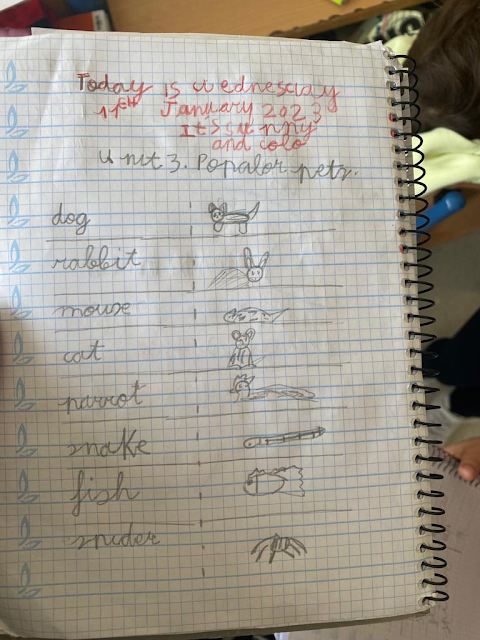 Today is wednesday
11th January 2023
It's sunny
and colo
Unit 3. Popalor pets.
dog
rabbit
mouse
cat
parrot
snake
fish
spider